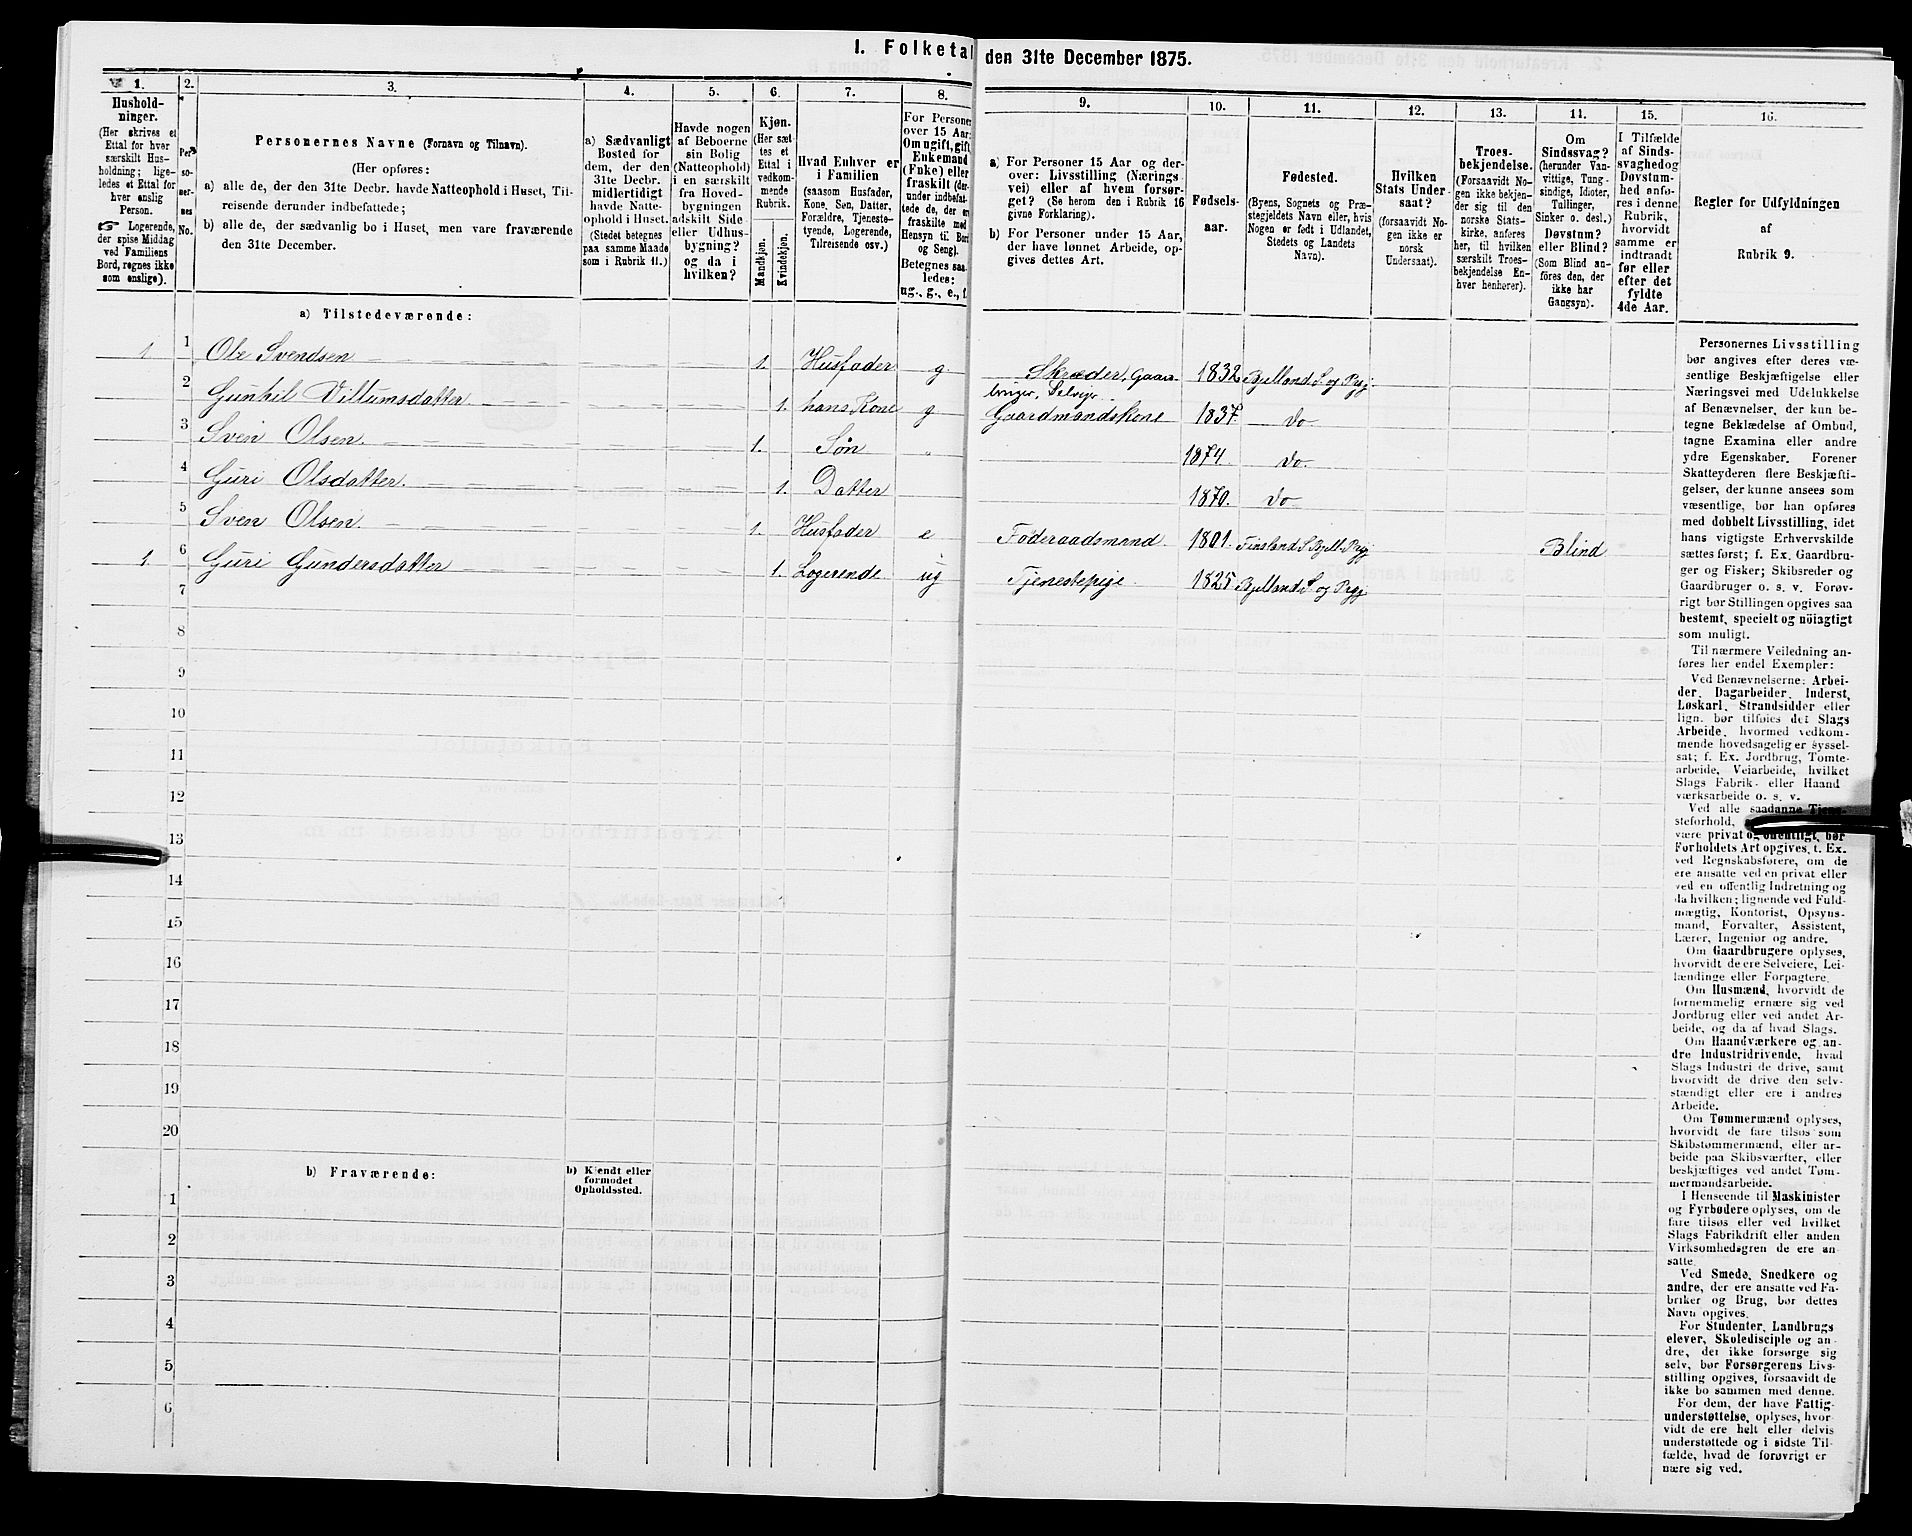 I. Folketal den 31te December 1875.
1.
Hushold-
ninger.
(Her skrives et
Ettal for hver
særskilt Hus-
holdning; lige-
ledes et Ettal for
hver enslig
Person.
☞ Logerende,
der spise Middag
ved Familiens
Bord, regnes ikke
som enslige).
2.
Per-
so-
ner-
nes
No.
3.
Personernes Navne (Fornavn og Tilnavn).
(Her opføres:
a) alle de, der den 31te Decbr. havde Natteophold i Huset, Til-
reisende derunder indbefattede;
b) alle de, der sædvanlig bo i Huset, men vare fraværende
den 31te December.
4.
a) Sædvanligt
Bosted for
dem, der den
31te Decbr.
midlertidigt
havde Natte-
ophold i Huset.
(Stedet betegnes
paa samme Maade
som i Rubrik 11.)
5.
Havde nogen
af Beboerne
sin Bolig
(Natteophold)
i en særskilt
fra Hoved-
bygningen
adskilt Side
eller Udhus-
bygning?
og da i
hvilken?
6.
Kjøn.
(Her sæt-
tes et
Ettal i
vedkom-
mende
Rubrik.)
Mandkjøn.
Kvindekjøn.
7.
Hvad Enhver er
i Familien
(saasom Husfader,
Kone, Søn, Datter,
Forældre, Tjeneste-
tyende, Logerende,
Tilreisende osv.)
8.
For Personer
over 15 Aar:
Om ugift, gift,
Enkemand
(Enke) eller
fraskilt (der-
under indbefat-
tede de, der er
fraskilte med
Hensyn til Bord
og Seng).
Betegnes saa-
ledes:
ug., g., e., f.
9.
a) For Personer 15 Aar og der-
over: Livsstilling (Nærings-
vei) eller af hvem forsør-
get? (Se herom den i Rubrik 16
givne Forklaring).
b) For Personer under 15 Aar,
der have lønnet Arbeide, op-
gives dettes Art.
10.
Fødsels-
aar.
11.
Fødested.
(Byens, Sognets og Præ-
stegjeldets Navn eller, hvis
Nogen er født i Udlandet,
Stedets og Landets
Navn).
12.
Hvilken
Stats Under-
saat?
(forsaavidt No-
gen ikke er
norsk
Undersaat).
13.
Troes-
bekjendelse.
(Forsaavidt No-
gen ikke bekjen-
der sig til den
norske Stats-
kirke, anføres
her, til hvilken
særskilt Troes-
bekjendelse En-
hver henhører).
14.
Om
Sindssvag?
(herunder Van-
vittige, Tung-
sindige, Idioter,
Tullinger,
Sinker o. desl.)
Døvstum?
eller Blind?
(Som Blind an-
føres den, der
ikke har
Gangsyn).
15.
I Tilfælde
af Sinds-
svaghed og
Døvstum-
hed anfø-
res i denne
Rubrik,
hvorvidt
samme er
indtraadt
før eller
efter det
fyldte
4de Aar.
16.
Regler for Udfyldningen
af
Rubrik 9.
a) Tilstedeværende:
1 1 Ole Svendsen 1. Husfader g Skræder, Gaard- 1832 Bjelland S og Prgj
bruger, Selvejer
2 Gunhil Villumsdatter 1. hans Kone g Gaardmandskone 1837. Do
3 Sven Olsen. 1. Søn „ 1874. Do.
4 Guri Olsdatter. 1. Datter 1870. Do
5 Sven Olsen. 1. Husfader e Føderaadsmand. 1801. Finsland S Bjell. Prgj Blind
1. 6 Guri Gundersdatter 1. Logerende ug Tjenestepige 1825 Bjelland S og Prgj
7
8
9
10
11
12
13
14
15
16
17
18
19
20
b) Fraværende:
b) Kjendt eller
formodet
Opholdssted.
1
2
3
4
5
6
Personernes Livsstilling
bør angives efter deres væ-
sentlige Beskjæftigelse eller
Næringsvei med Udelukkelse
af Benævnelser, der kun be-
tegne Beklædelse af Ombud,
tagne Examina eller andre
ydre Egenskaber. Forener
Skatteyderen flere Beskjæfti-
gelser, der kunne ansees som
væsentlige, bør han opføres
med dobbelt Livsstilling, idet
hans vigtigste Erhvervskilde
sættes først; f. Ex. Gaardbru-
ger og Fisker; Skibsreder og
Gaardbruger o. s. v. Forøv-
rigt bør Stillingen opgives saa
bestemt, specielt og nöiagtigt
som muligt.
Til nærmere Veiledning an-
føres her endel Exempler:
Ved Benævnelserne: Arbei-
der, Dagarbeider, Inderst,
Løskarl, Strandsidder eller
lign. bør tilføies det Slags
Arbeide, hvormed vedkom-
mende hovedsagelig er syssel-
sat; f. Ex. Jordbrug, Tomte-
arbeide, Veiarbeide, hvilket
Slags Fabrik- eller Haand
værksarbeide o. s. v.
Ved alle saadanne Tjene-
steforhold,
være privat og offentligt, bør
Forholdets Art opgives, f. Ex.
ved Regnskabsførere, om de
ere ansatte ved en privat eller
ved en offentlig Indretning og
da hvilken; lignende ved Fuld-
mægtig, Kontorist, Opsyns-
mand, Forvalter, Assistent,
Lærer, Ingeniør og andre.
Om Gaardbrugere oplyses,
hvorvidt de ere Selveiere, Lei-
lændinge eller Forpagtere.
Om Husmænd, hvorvidt de
fornemmelig ernære sig ved
Jordbrug eller ved andet Ar-
beide, og da af hvad Slags.
Om Haandværkere og an-
dre Industridrivende, hvad
Slags Industri de drive, samt
hvorvidt de drive den selv-
stændigt eller ere i andres
Arbeide.
Om Tømmermænd oplyses,
hvorvidt de fare tilsøs som
Skibstømmermænd, eller ar-
beide paa Skibsværfter, eller
beskjæftiges ved andet Tøm-
mermandsarbeide.
I Henseende til Maskinister
og Fyrbødere oplyses, om de
fare tilsøs eller ved hvilket
Slags Fabrikdrift eller anden
Virksomhedsgren de ere an-
satte.
Ved Smede, Snedkere og
andre, der ere ansatte ved Fa-
briker og Brug, bør dettes
Navn opgives.
For Studenter, Landbrugs
elever, Skoledisciple og an-
dre, der ikke forsørge sig
selv, bør Forsørgerens Livs-
stilling opgives, forsaavidt de
ikke bo sammen med denne.
For dem, der have Fattig-
understøttelse, oplyses, hvor-
vidt de ere helt eller delvis
understøttede og i sidste Til-
fælde, hvad de forøvrigt er
nære sig ved.